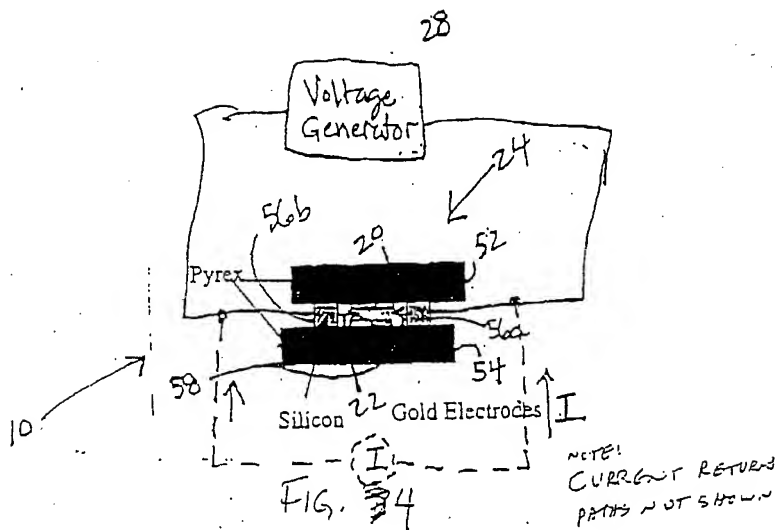 28
Voltage
Generator
24
56b
20
52
Pyrex
56a
58
54
Silicon
22
Gold Electrodes
I
10
I
FIG. 4
NOTE!
CURRENT RETURN
PATHS NOT SHOWN